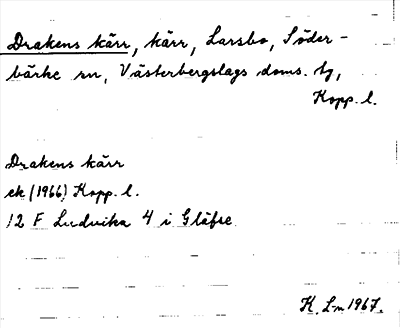 Drakens kärr, kärr, Larsbo, Söder-
bärke sn, Västerbergslags doms. tg,
Kopp. l.
Drakens kärr
ek (1966) Kopp. l.
12 F Ludvika 4 i Gläfse
K. L-m 1967.